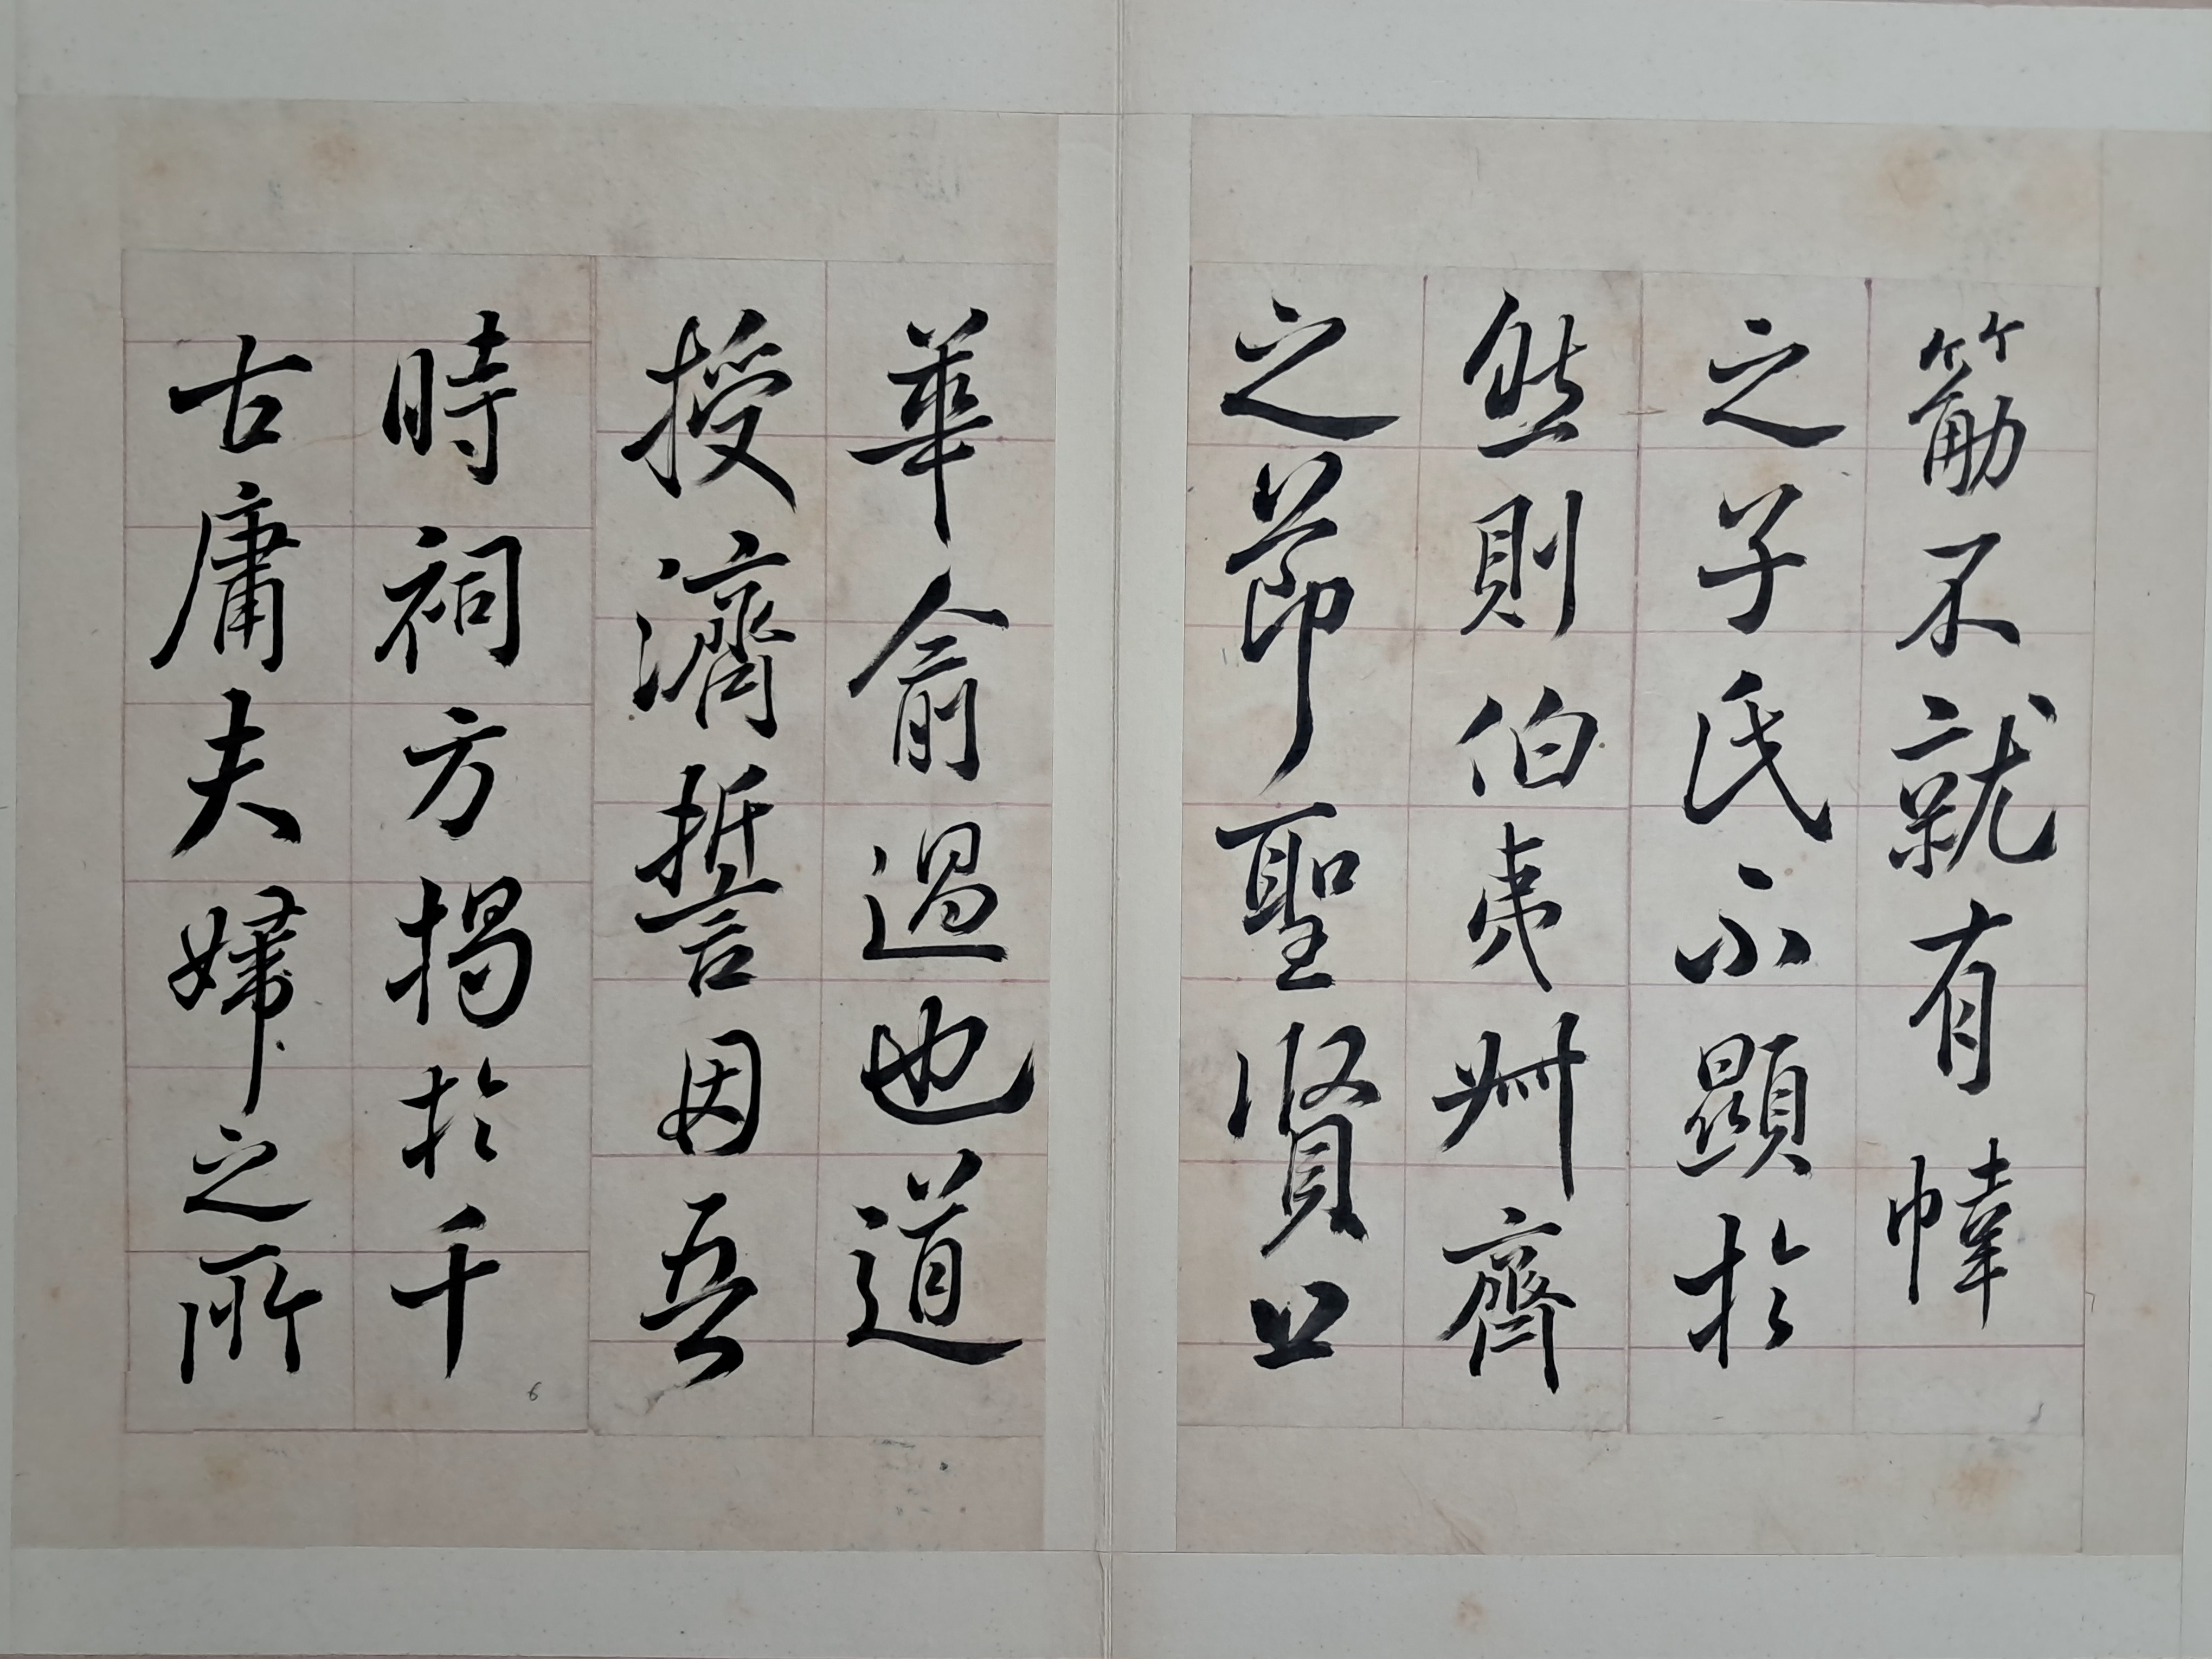 筋不就有幃
之子氏不顯於
然則伯夷卅齊
之節聖賢口
華俞過也道
授濟誓因吾
時祠方揭於千
古庸夫婦之所
6